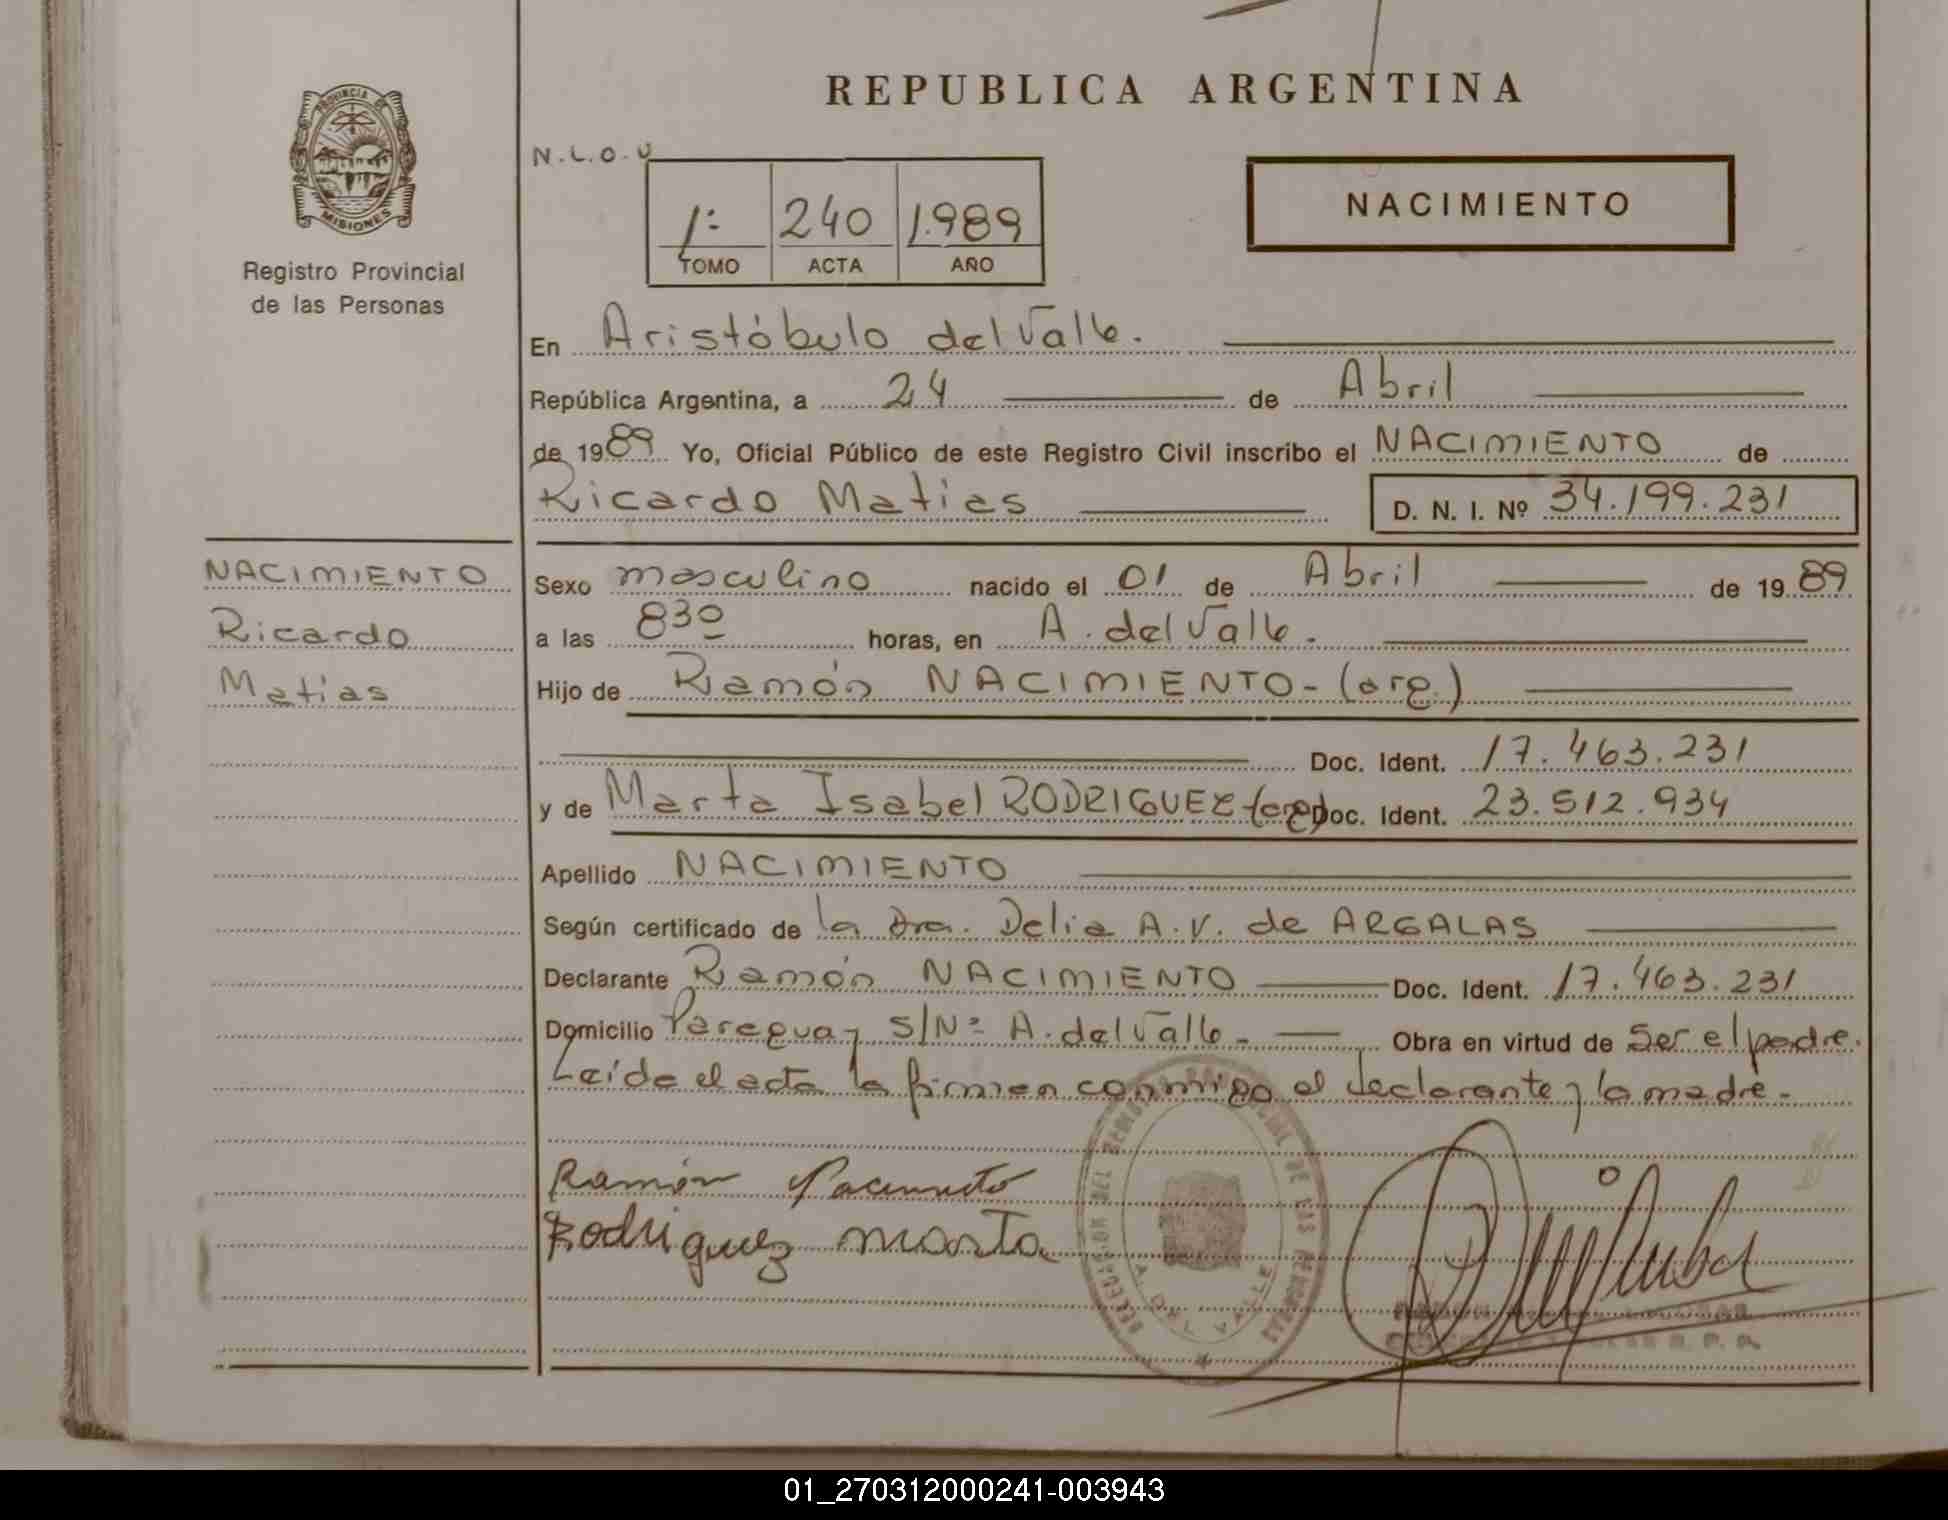 REPUBLICA ARGENTINA
PROVINCIA DE MISIONES
Registro Provincial
de las Personas
N.L.O.U
1: 240 1.989
TOMO ACTA AÑO
NACIMIENTO
En Aristóbulo del Valle.
República Argentina, a 24 de Abril
de 1989 Yo, Oficial Público de este Registro Civil inscribo el NACIMIENTO de
Ricardo Matias D. N. I. Nº 34.199.231
NACIMIENTO
Ricardo
Matias
Sexo masculino nacido el 01 de Abril de 1989
a las 830 horas, en A. del Valle.
Hijo de Ramón NACIMIENTO - (arg.)
Doc. Ident. 17.463.231
y de Marta Isabel RODRIGUEZ (arg) Doc. Ident. 23.512.934
Apellido NACIMIENTO
Según certificado de la Dra. Delia A.V. de ARGALAS
Declarante Ramón NACIMIENTO Doc. Ident. 17.463.231
Domicilio Paraguay S/Nº A. del Valle - Obra en virtud de Ser el padre.
Leída el acta la firman conmigo el declarante y la madre -
Ramón Nacimiento
Rodriguez Marta
DEL REGISTRO PROVINCIAL DE LAS PERSONAS
A. DEL VALLE
01_270312000241-003943